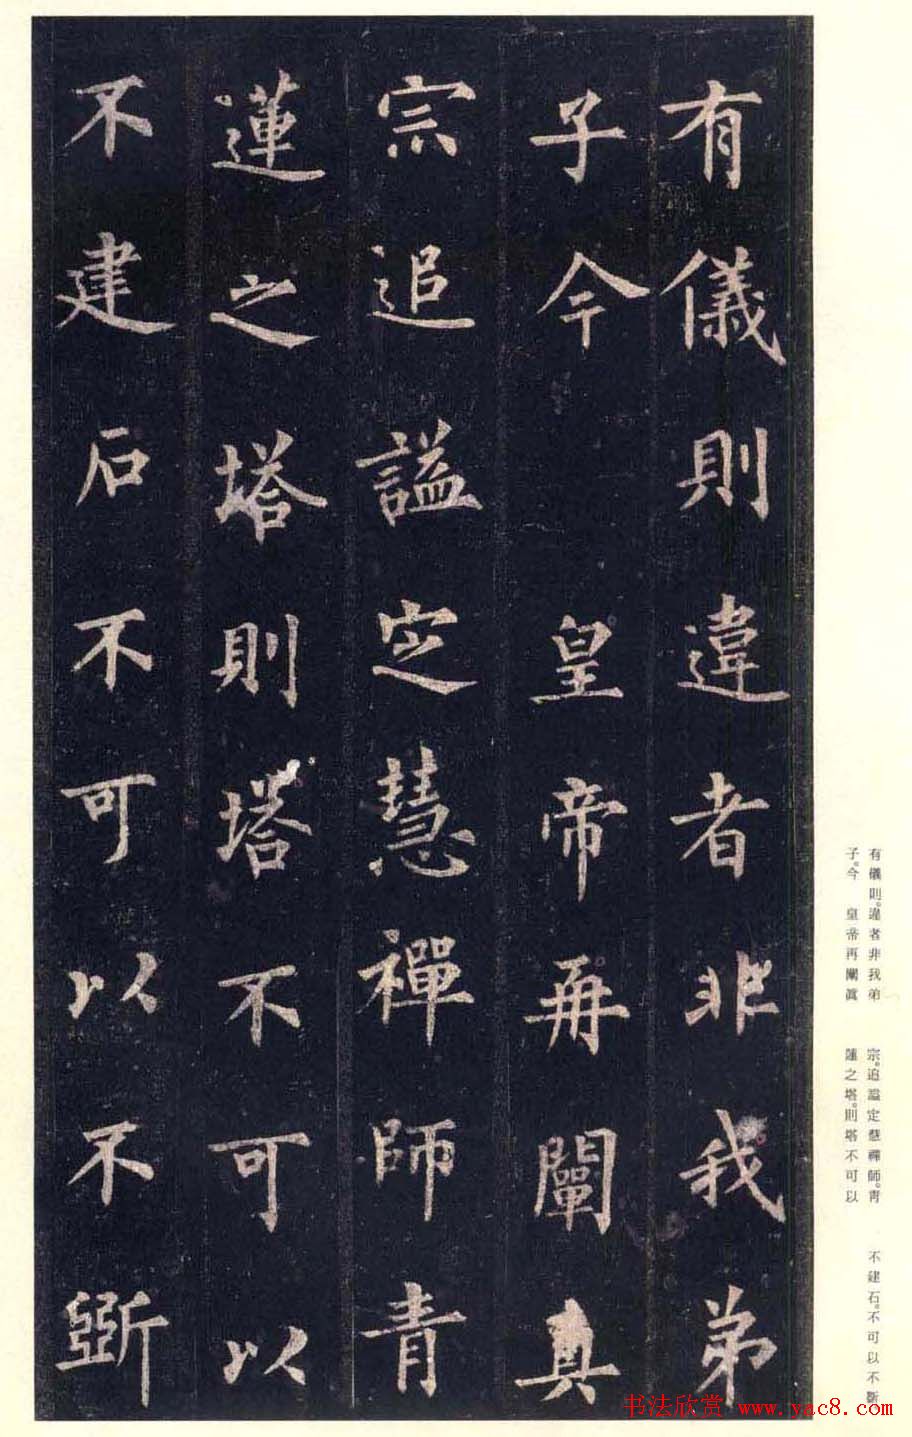 有儀則違者非我弟
子今 皇帝再闡真
宗追謚定慧禪師青
蓮之塔則塔不可以
不建石不可以不斷
有儀則。違者非我弟
子。今 皇帝再闡眞
宗。追謚定慧禪師。靑
蓮之塔。則塔不可以
不建石。不可以不斷
书法欣赏 www.yac8.com